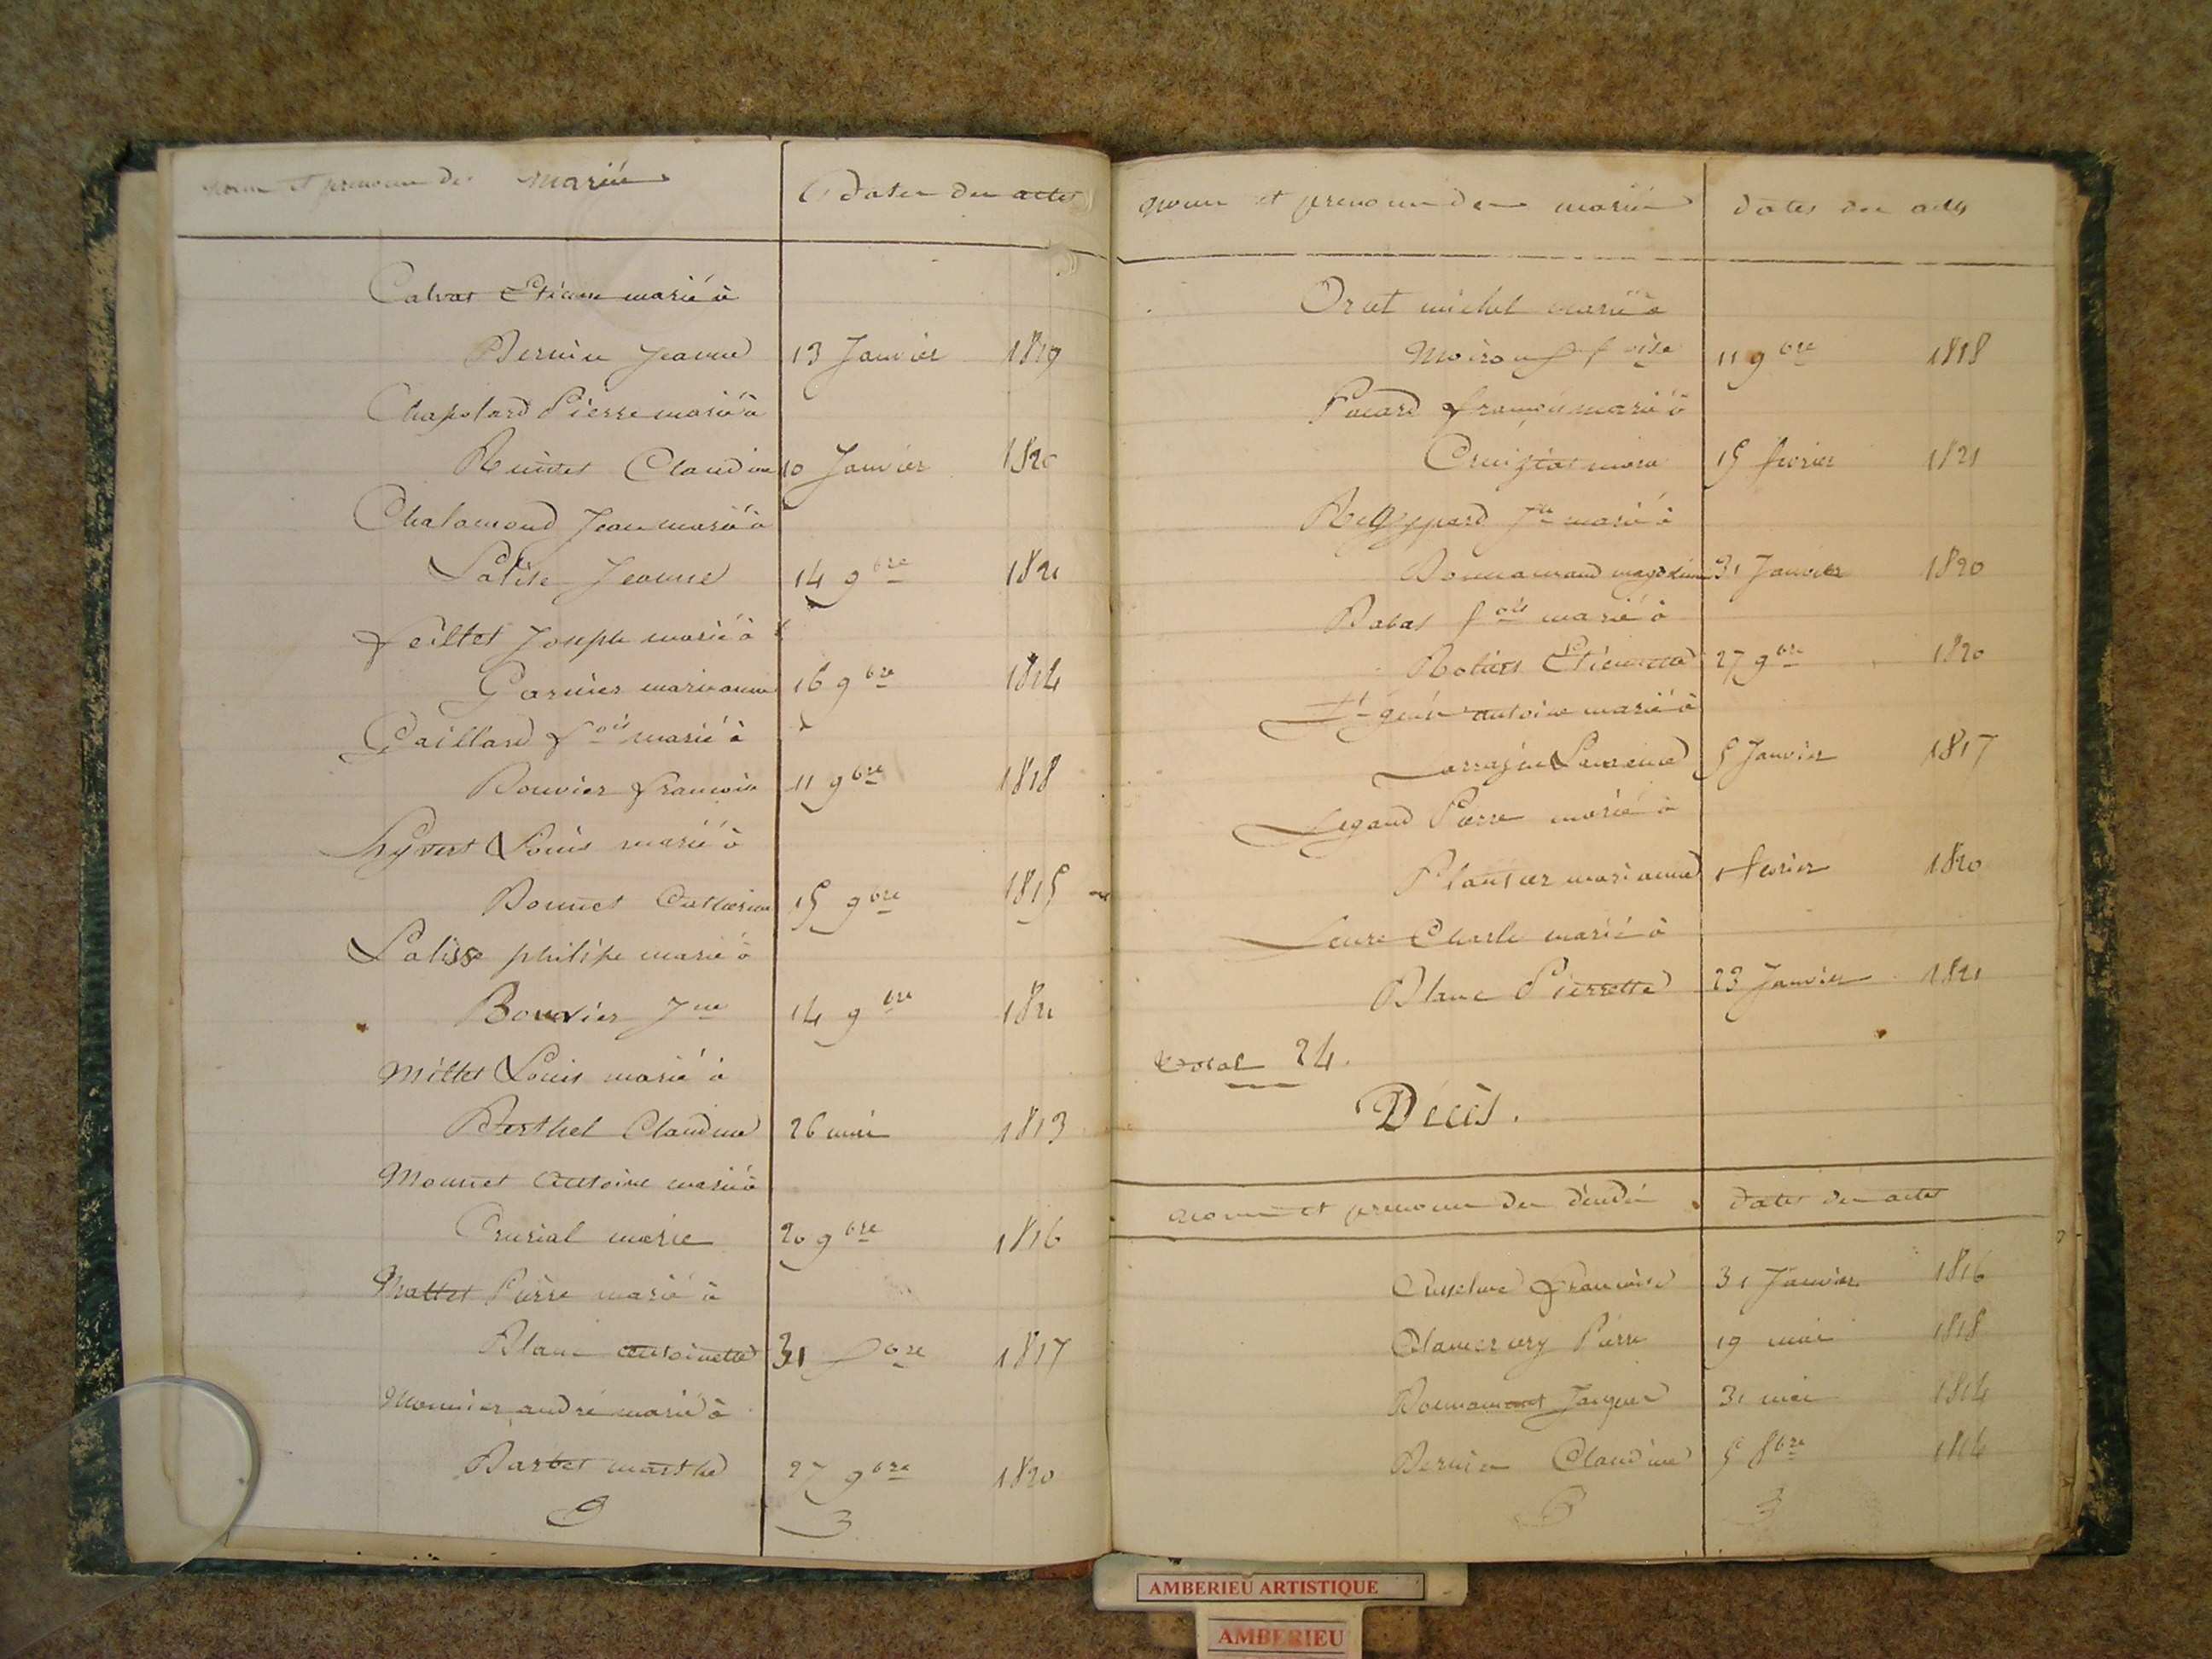 noms et prenoms des mariés
dates des actes
Calvat Etienne marié à
Bernin Jeanne 13 Janvier 1819
Chapolard Pierre marié à
Claudine 10 Janvier 1820
Chalamond Jean marié à
Jeanne 14 9bre 1821
feiltet Joseph marié à
Garnier marieanne 16 9bre 1814
Gaillard fois marié à
Bouvier francoise 11 9bre 1818
hyvert Louis marié à
Bonnet Catherine 15 9bre 1815
Lalisse philipe marié à
Bouvier Jne 14 9bre 1821
Millet Louis marié à
Barthel Claudine 26 mai 1813
Monnet Antoine marié à
Crusial marie 20 9bre 1816
Mallet Pierre marié à
Blanc antoinette 31 1817
Monnier andré marié à
Barbet marthe 27 9bre 1820
noms et prenoms des mariés
dates des actes
Orset michel marié à
Moiron foise 11 9bre 1818
françois marié à
15 fevrier 1821
marié à
31 Janvier 1820
Babat fois marié à
Etiennette 27 9bre 1820
St genis antoine marié à
5 Janvier 1817
Segaud Pierre marié à
Plantier marianne 1 fevrier 1820
Charle marié à
Blanc Pierrette 23 Janvier 1821
total 24.
Décès.
noms et prenoms des décédés
dates des actes
Anselme francoise 31 Janvier 1816
Pierre 19 mai 1818
Jacques 31 mai 1814
Bernin Claudine 5 8bre 1814
AMBERIEU ARTISTIQUE
AMBERIEU